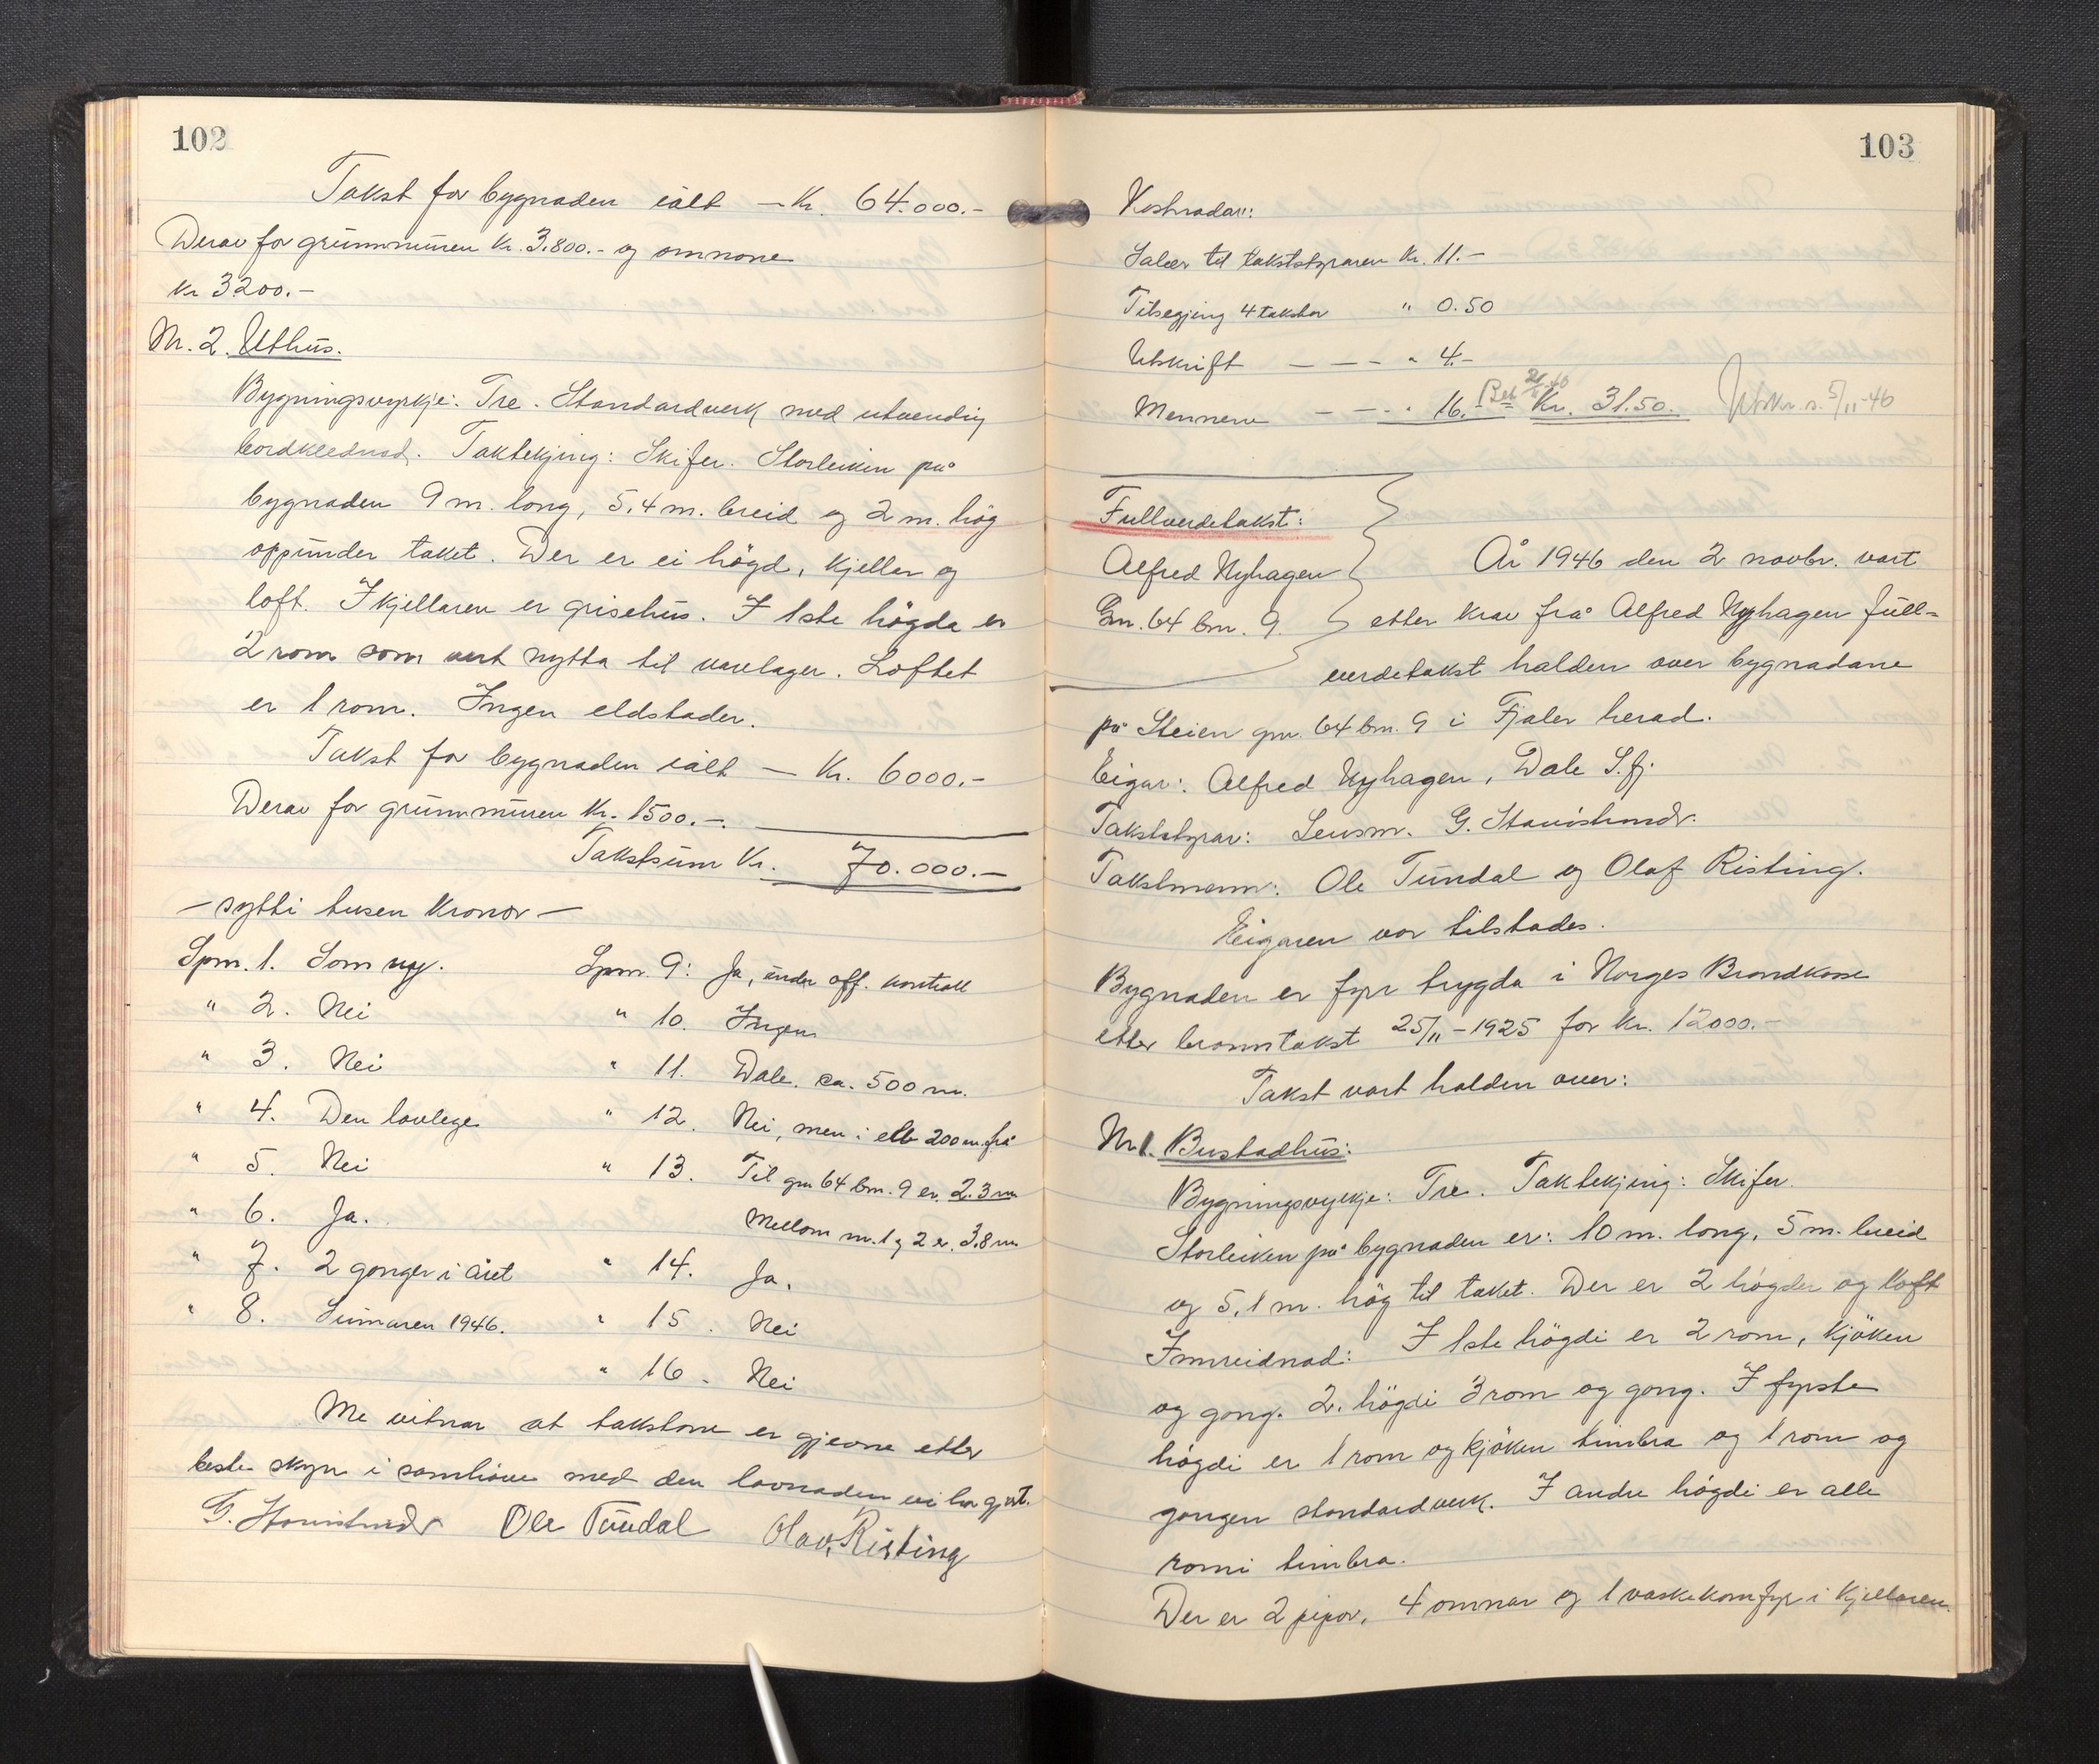 102
Takst for bygnaden ialt — Kr. 64.000.-
Derav for grunnmuren Kr. 3.800.- og omnane
Kr 3200.-
Nr. 2. Uthus.
Bygningsvyrkje: Tre. Standardverk med utvendig
bordklednad. Taktekjing: Skifer. Storleiken på
bygnaden 9 m. lang, 5,4 m. breid og 2 m. høg
oppunder taket. Der er ei högd, kjellar og
loft. I kjellaren er grisehus. I 1ste högda er
2 rom som vert nytta til varelager. Loftet
er 1 rom. Ingen eldstader.
Takst for bygnaden ialt — Kr. 6000.-
Derav for grunnmuren Kr. 1500.-.
Takstsum Kr. 70.000.-
— sytti tusen kronor —
Spm. 1. Som ny. Spm. 9: Ja, under off. kontroll
" 2. Nei " 10. Ingen
" 3. Nei " 11. Dale. ca. 500 m.
" 4. Den lovlege " 12. Nei, men i elv 200 m. frå
" 5. Nei " 13. Til gnr 64 bnr. 9 er 2.3 m
" 6. Ja. Mellom nr. 1 og 2 er 3,8 m
" 7. 2 gonger i året " 14. Ja.
" 8. Sumaren 1946. " 15. Nei
" 16. Nei
Me vitnar at takstane er gjevne etter
beste skyn i samhøve med den lovnaden vi har gjevt.
Ole Tundal Olav Risting
103
Kostnadar:
Salær til takststyraren Kr. 11.-
Tilsegjing 4 takster " 0.50
Utskrift — — — " 4.-
Mennene — — - " 16.- = Kr. 31.50. Utskr. s. 5/11-46
Fullverdetakst:
Alfred Nyhagen
Gnr. 64 bnr. 9.
År 1946 den 2 novbr. vart
etter krav frå Alfred Nyhagen full-
verdetakst halden over bygnadane
på Steien gnr. 64 bnr. 9 i Fjaler herad.
Eigar: Alfred Nyhagen, Dale S.fj.
Takststyrar: Lensm. G.
Takstmenn: Ole Tundal og Olaf Risting.
Eigaren var tilstades.
Bygnaden er fyrr trygda i Norges Brandkasse
etter branntakst 25/11-1925 for kr. 12000.-
Takst vart halden over:
Nr 1. Bustadhus:
Bygningsvyrkje: Tre. Taktekjing: Skifer.
Storleiken på bygnaden er: 10 m. lang, 5 m. breid
og 5,1 m. høg til taket. Der er 2 högder og loft
Innreidnad: I 1ste högdi er 2 rom, kjöken
og gong. 2. högdi 3 rom og gong. I fyrste
högdi er 1 rom og kjöken timbra og 1 rom og
gongen standardverk. I andre högdi er alle
romi timbra.
Der er 2 pipor, 4 omnar og 1 vaskekomfyr i kjellaren.